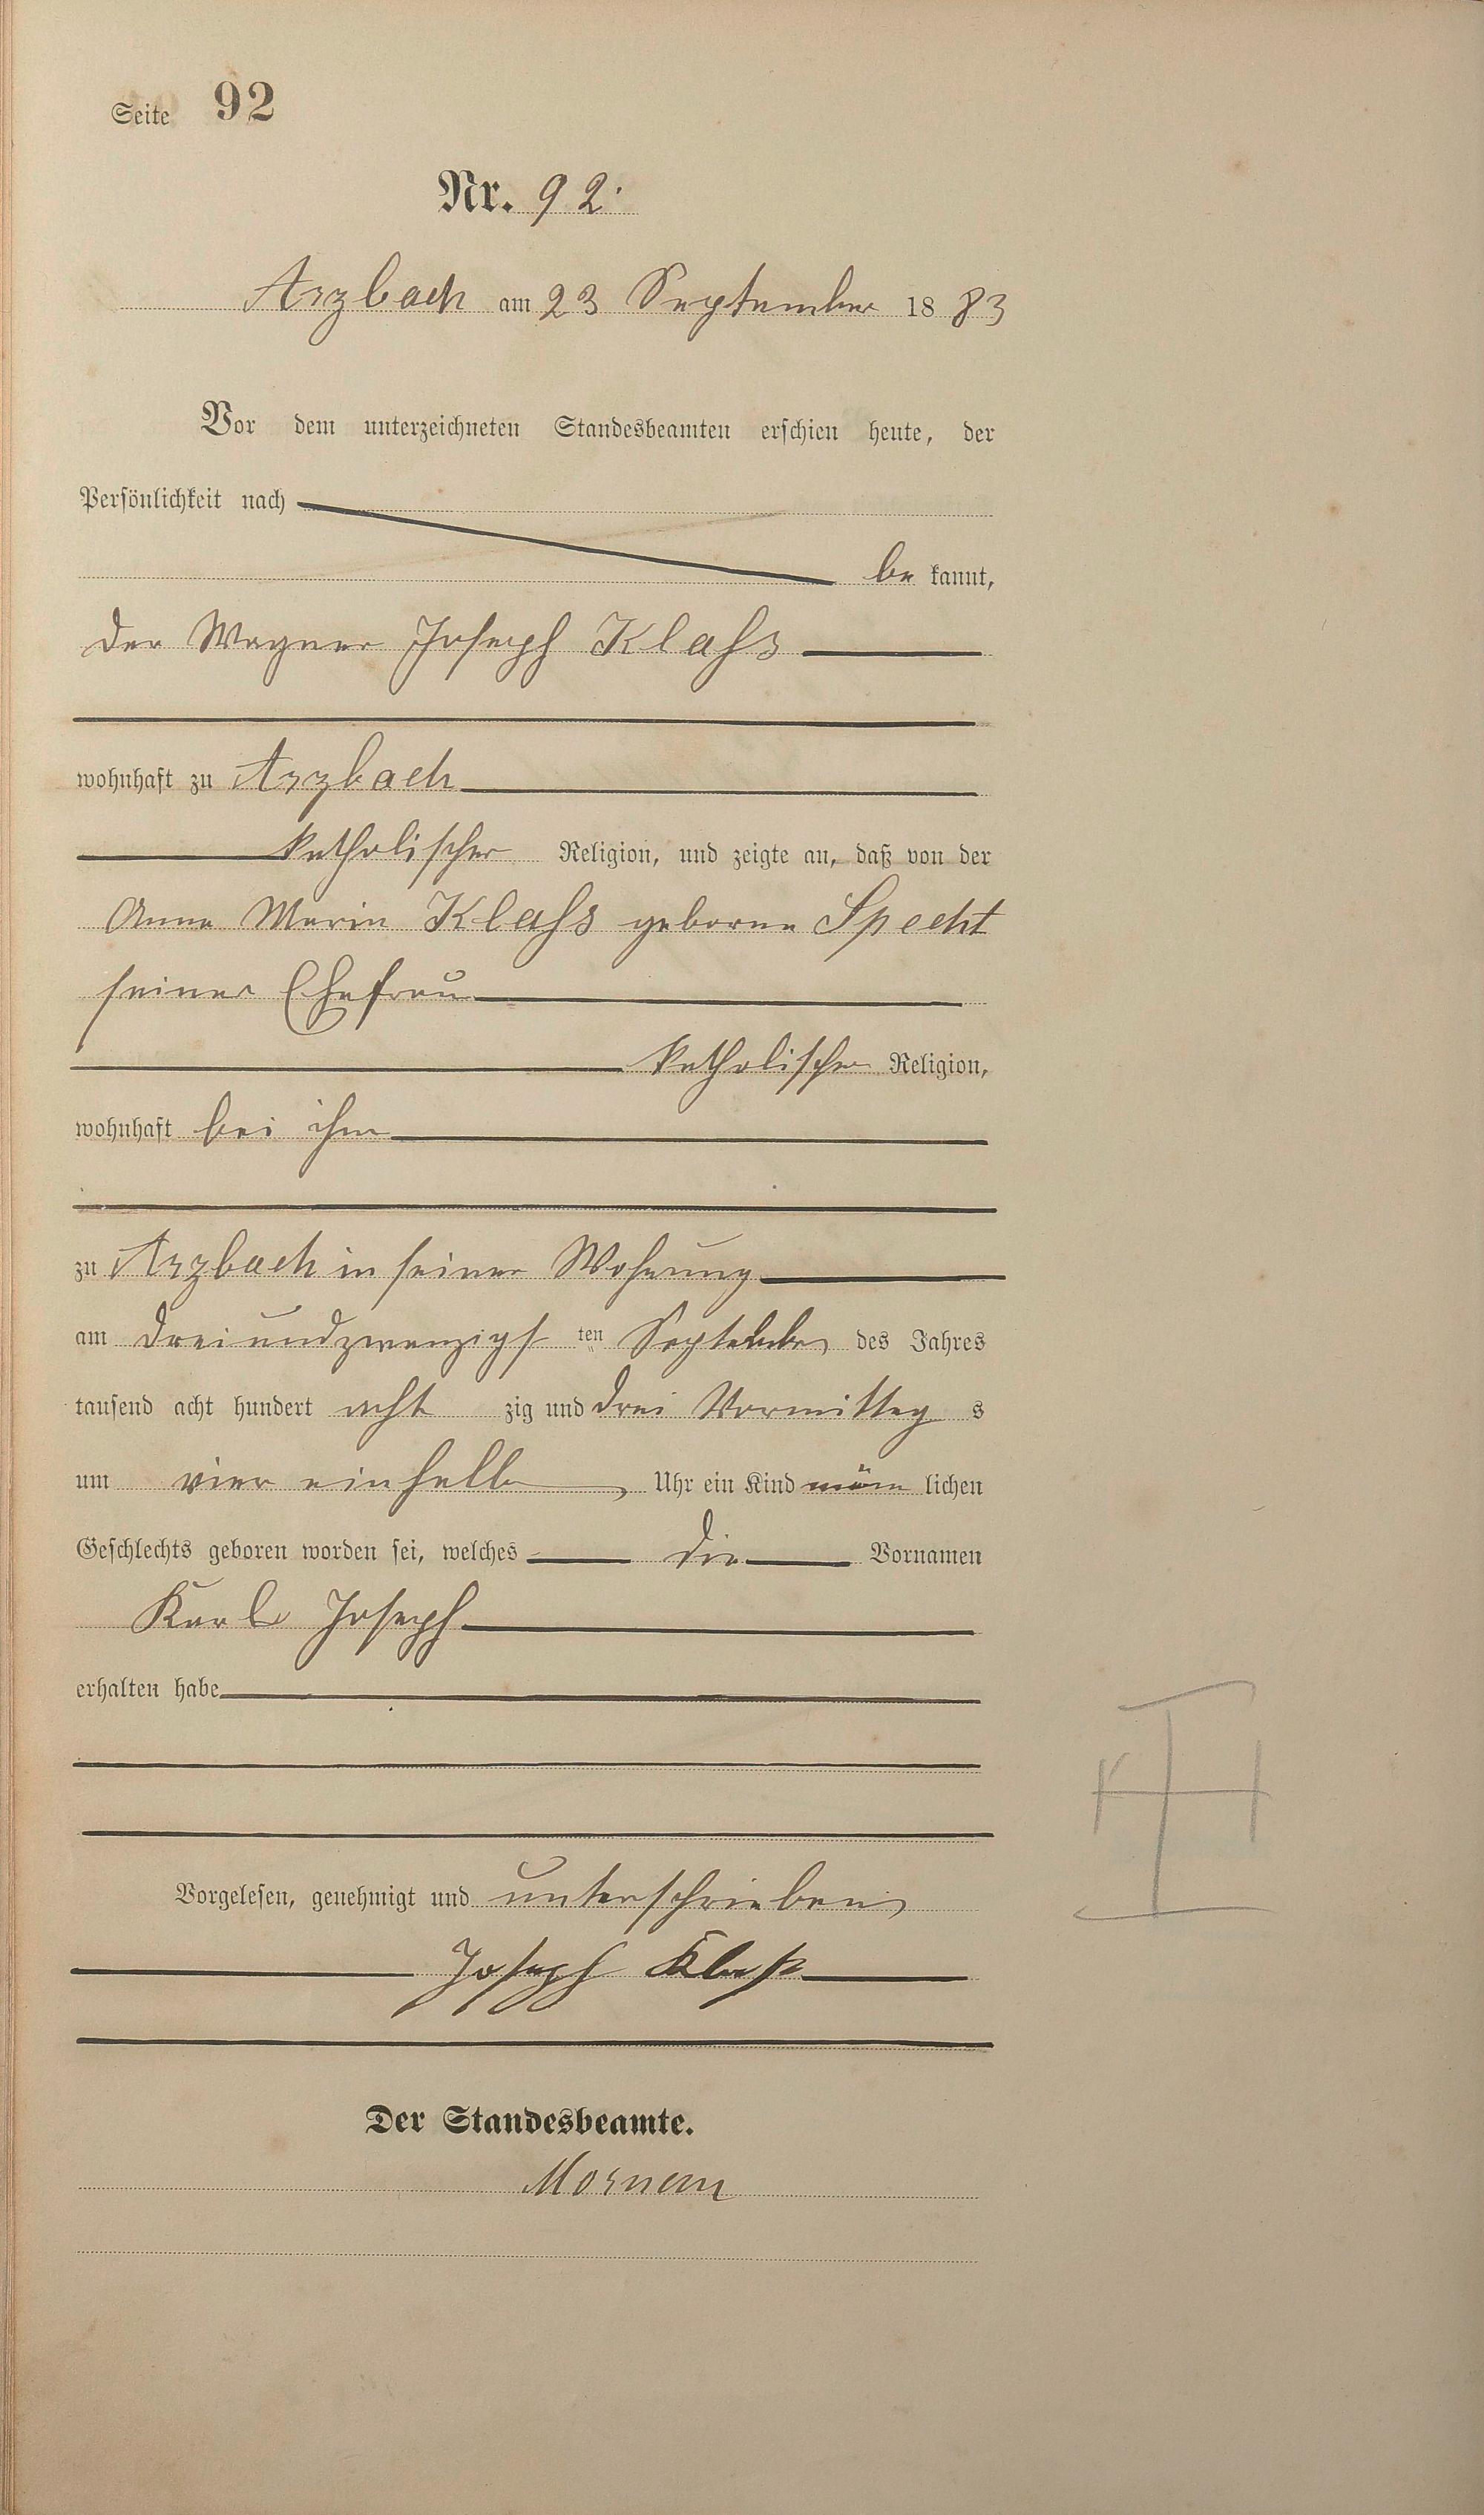 Seite 92
Nr. 92.
Arzbach am 23 September 1883
Vor dem unterzeichneten Standesbeamten erschien heute, der
Persönlichkeit nach
be kannt,
der Wagner Joseph Klaß
wohnhaft zu Arzbach
katholischer Religion, und zeigte an, daß von der
Anna Maria Klaß geborne Specht
seiner Ehefrau
katholischer Religion,
wohnhaft bei ihm
zu Arzbach in seiner Wohnung
am dreiundzwanzigs ten September des Jahres
tausend acht hundert acht zig und drei Vormittag s
um vier einhalb Uhr ein Kind män lichen
Geschlechts geboren worden sei, welches die Vornamen
Karl Joseph
erhalten habe
Vorgelesen, genehmigt und unterschrieben
Joseph Klaß
Der Standesbeamte.